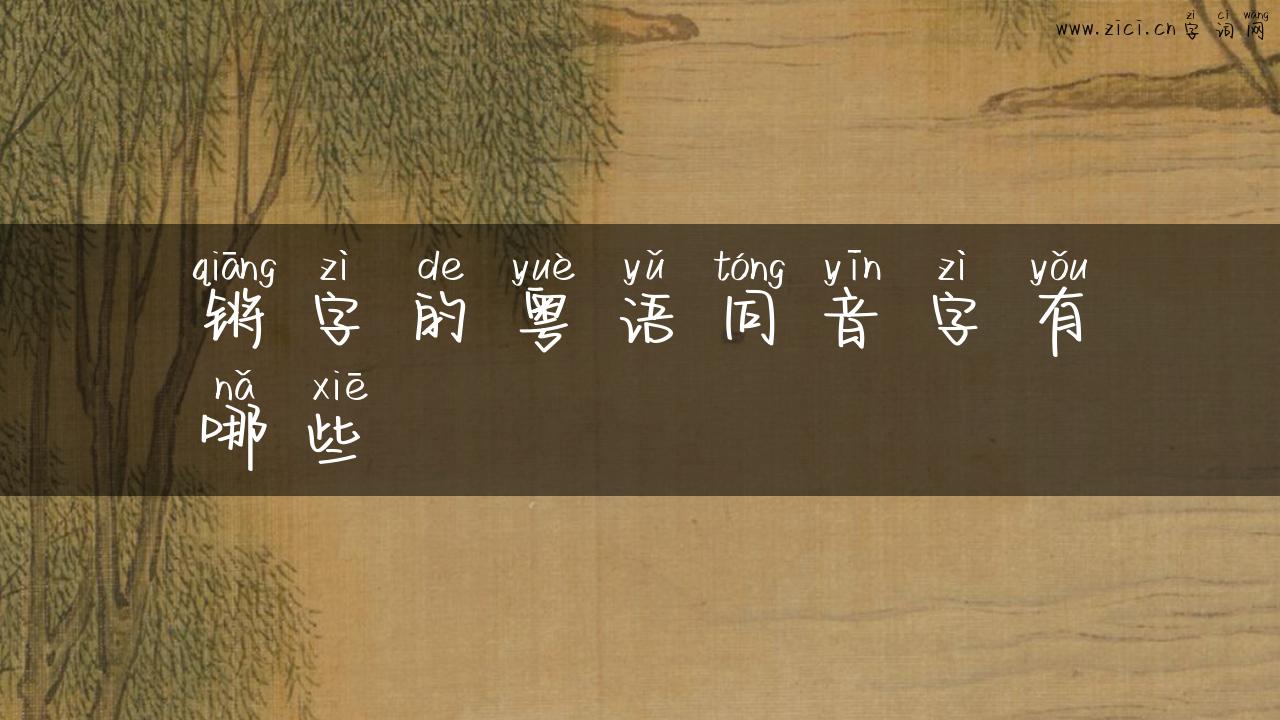 zì cí wǎng
www.zici.cn字词网
qiāng zì de yuè yǔ tóng yīn zì yǒu
锵字的粤语同音字有
nǎ xiē
哪些